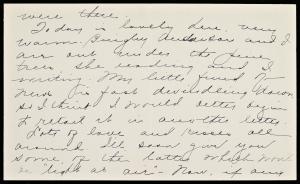 were there.
Today is lovely here, very
warm. Burghy Anderson and I
are out under the pine
trees she reading and I
writing. My little fund of
news is fast dwindling down
so I think I would better begin
to retail it in another letter.
Lots of love and kisses all
around. I'll soon give you
some of the latter which won't
be "light as air" - Now, if any